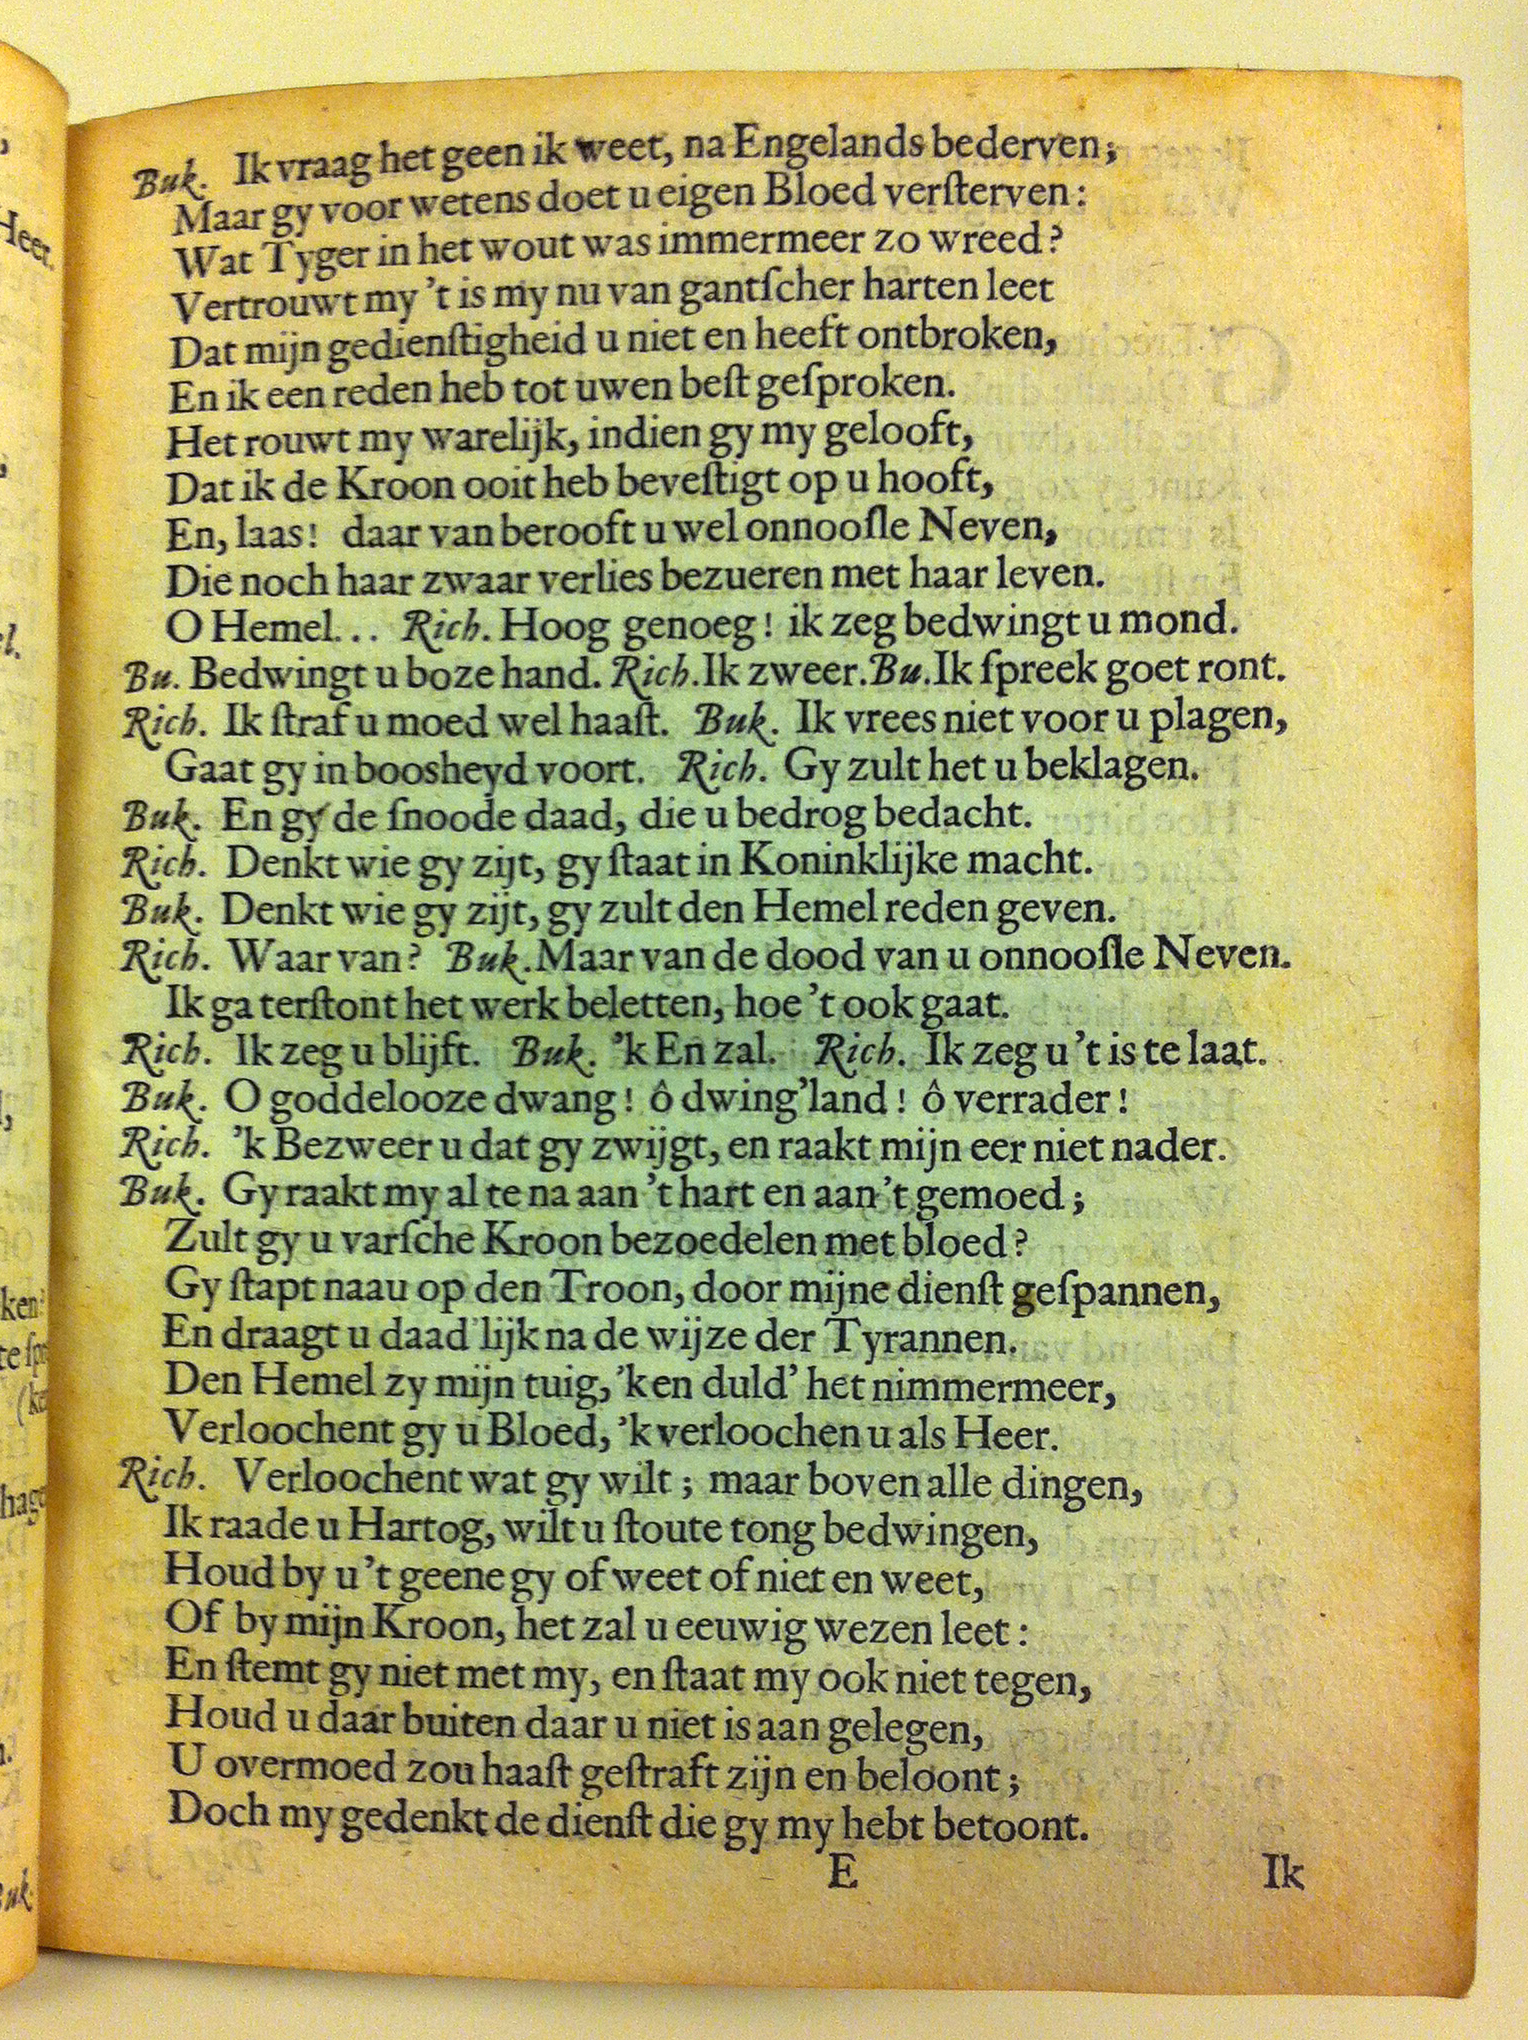 Buk. Ik vraag het geen ik weet, na Engelands bederven;
Maar gy voor wetens doet u eigen Bloed verſterven:
Wat Tyger in het wout was immermeer zo wreed?
Vertrouwt my 't is my nu van gantſcher harten leet
Dat mijn gedienſtigheid u niet en heeft ontbroken,
En ik een reden heb tot uwen beſt geſproken.
Het rouwt my warelijk, indien gy my gelooft,
Dat ik de Kroon ooit heb beveſtigt op u hooft,
En, laas! daar van berooft u wel onnooſle Neven,
Die noch haar zwaar verlies bezueren met haar leven.
O Hemel... Rich. Hoog genoeg! ik zeg bedwingt u mond.
Bu. Bedwingt u boze hand. Rich. Ik zweer. Bu. Ik ſpreek goet ront.
Rich. Ik ſtraf u moed wel haaſt. Buk. Ik vrees niet voor u plagen,
Gaat gy in boosheyd voort. Rich. Gy zult het u beklagen.
Buk. En gy de ſnoode daad, die u bedrog bedacht.
Rich. Denkt wie gy zijt, gy ſtaat in Koninklijke macht.
Buk. Denkt wie gy zijt, gy zult den Hemel reden geven.
Rich. Waar van? Buk. Maar van de dood van u onnooſle Neven.
Ik ga terſtont het werk beletten, hoe 't ook gaat.
Rich. Ik zeg u blijft. Buk. 'k En zal. Rich. Ik zeg u 't is te laat.
Buk. O goddelooze dwang! ô dwing'land! ô verrader!
Rich. 'k Bezweer u dat gy zwijgt, en raakt mijn eer niet nader.
Buk. Gy raakt my al te na aan 't hart en aan 't gemoed;
Zult gy u varſche Kroon bezoedelen met bloed?
Gy ſtapt naau op den Troon, door mijne dienſt geſpannen,
En draagt u daad'lijk na de wijze der Tyrannen.
Den Hemel zy mijn tuig, 'k en duld' het nimmermeer,
Verloochent gy u Bloed, 'k verloochen u als Heer.
Rich. Verloochent wat gy wilt; maar boven alle dingen,
Ik raade u Hartog, wilt u ſtoute tong bedwingen,
Houd by u 't geene gy of weet of niet en weet,
Of by mijn Kroon, het zal u eeuwig wezen leet:
En ſtemt gy niet met my, en ſtaat my ook niet tegen,
Houd u daar buiten daar u niet is aan gelegen,
U overmoed zou haaſt geſtraft zijn en beloont;
Doch my gedenkt de dienſt die gy my hebt betoont.
E Ik